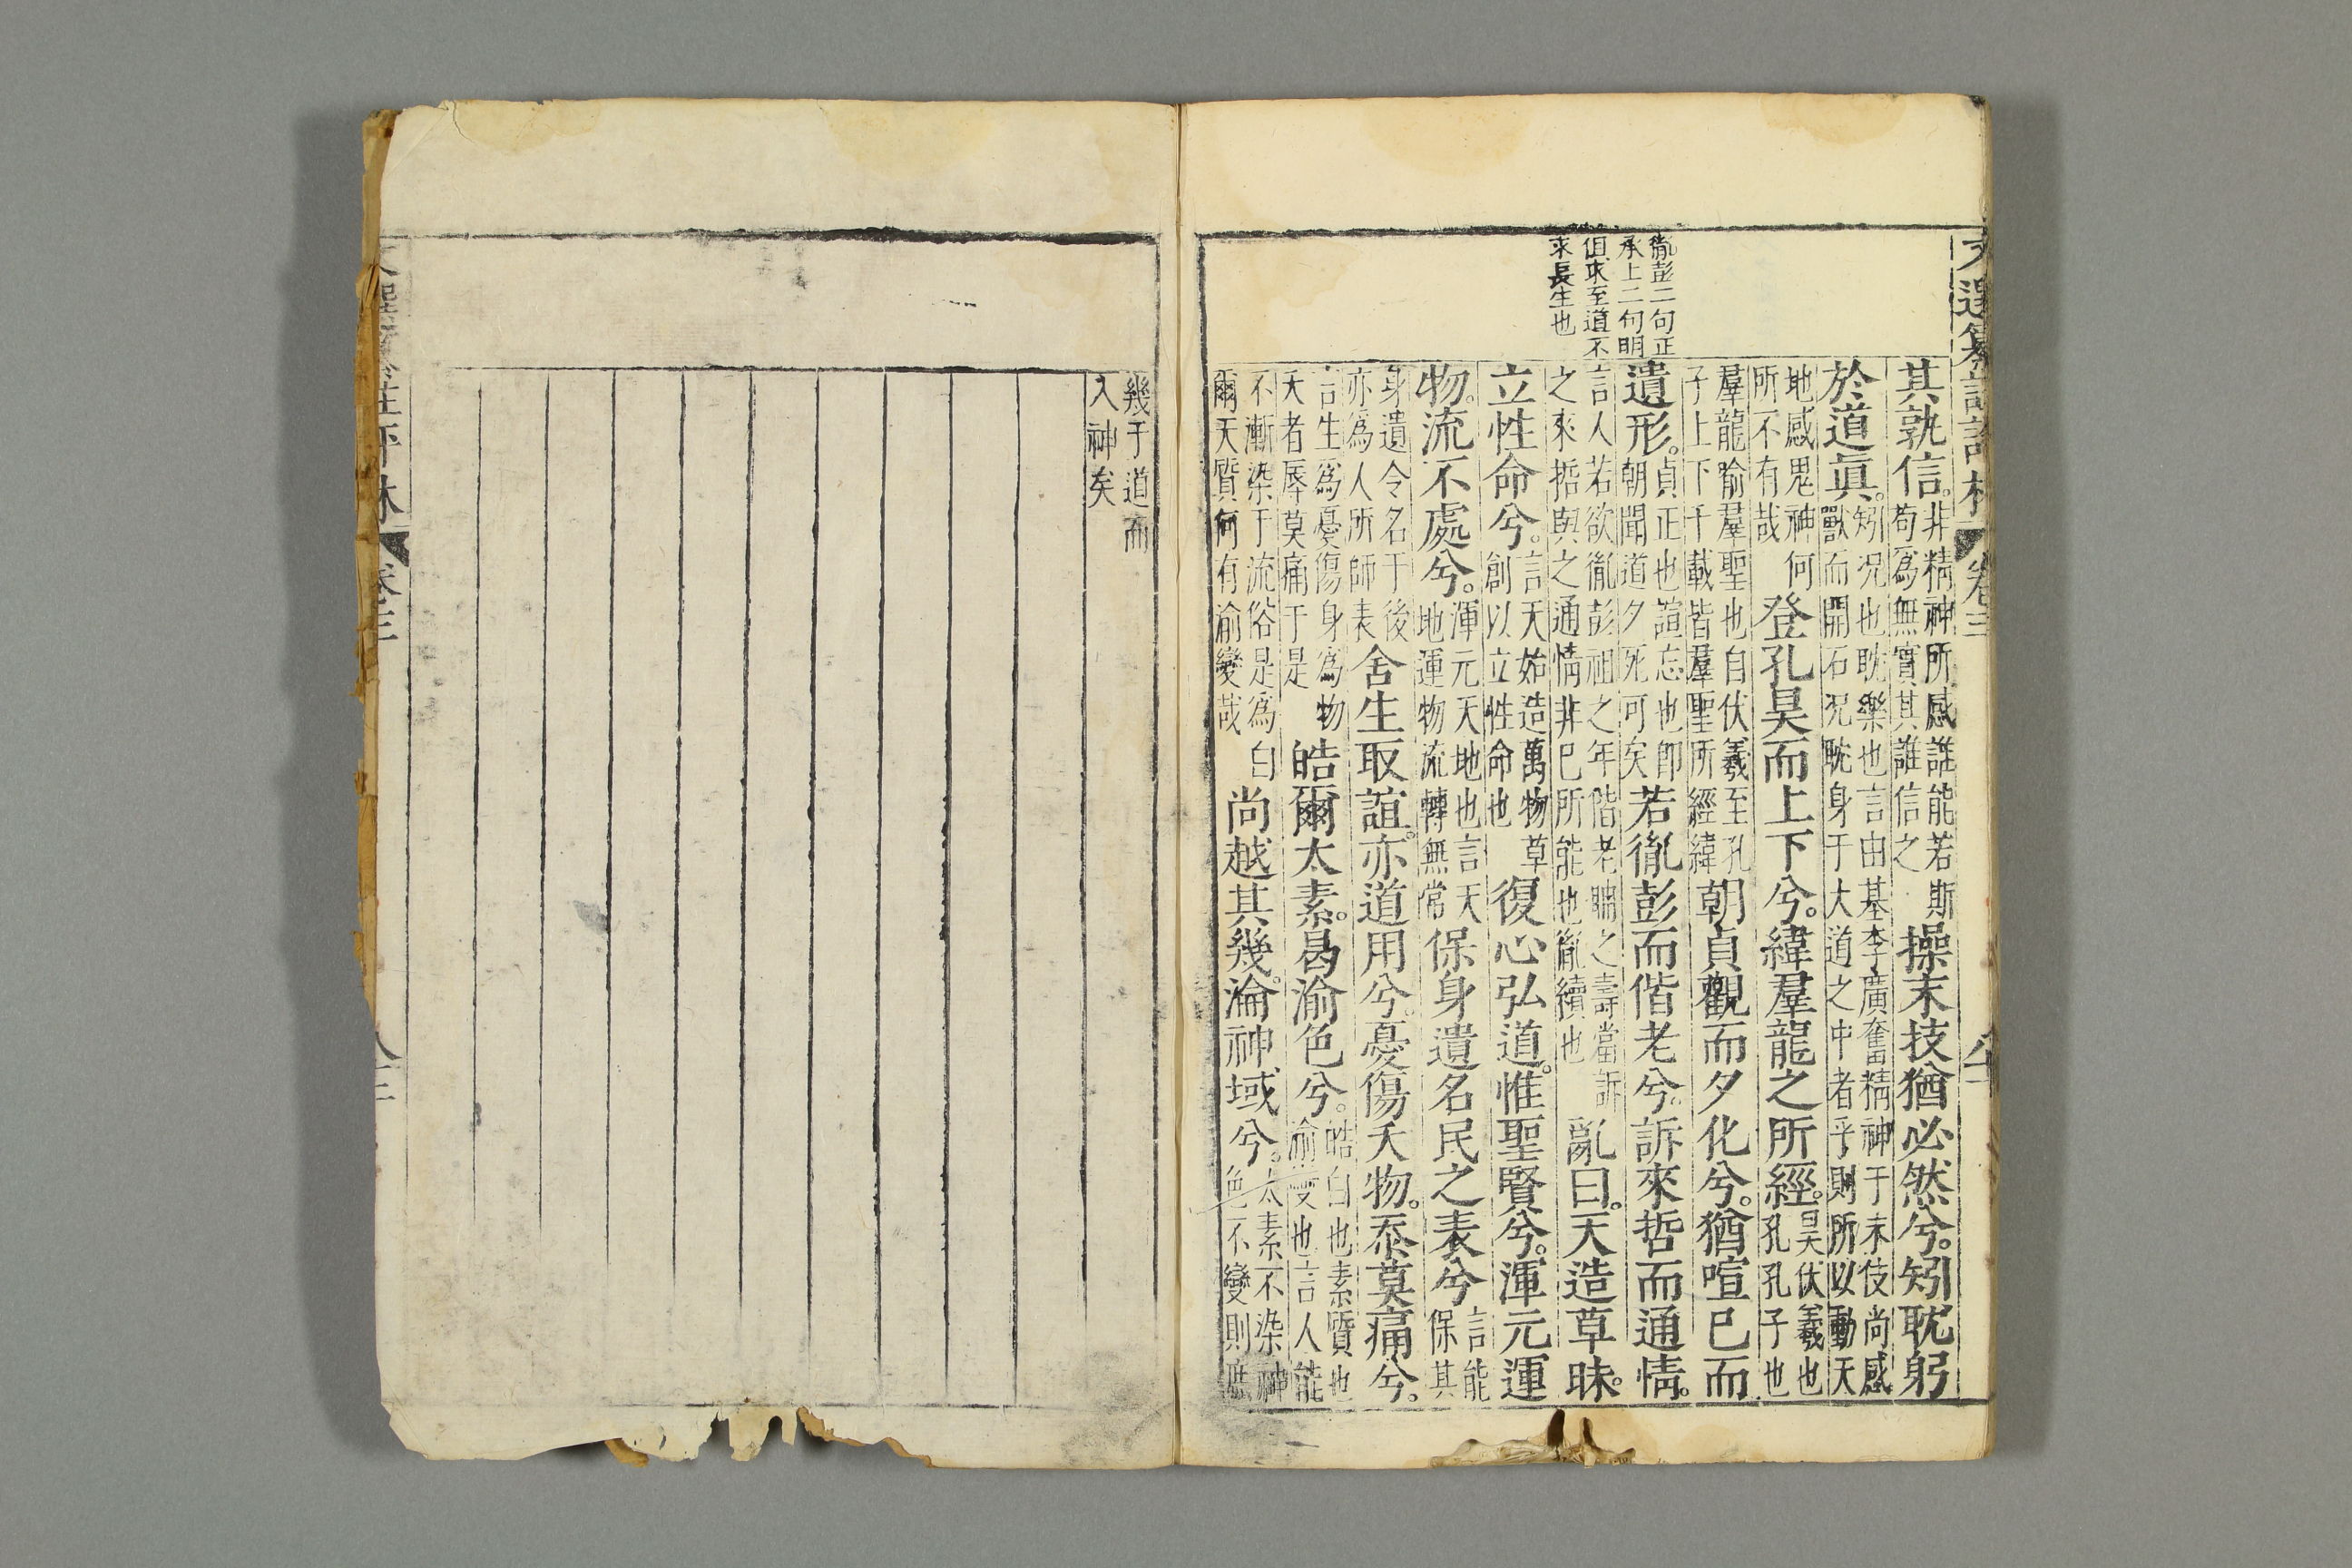 文選纂註評林 卷三
胤彭二句正
承上二句明
但求至道不
求長生也
其孰信。非精神所感誰能若斯苟爲無實其誰信之操末技猶必然兮。矧耽躬
於道眞。矧况也耽樂也言由基李廣奮精神于末伎尚感獸而開石况躭身于大道之中者乎則所以動天
地感鬼神何所不有哉登孔昊而上下兮。緯羣龍之所經。昊伏羲也孔孔子也
羣龍喻羣聖也自伏羲至孔子上下千載皆羣聖所經緯朝貞觀而夕化兮。猶諠己而
遺形。貞正也諠忘也卽朝聞道夕死可矣若胤彭而偕老兮。訴來哲而通情。
言人若欲胤彭祖之年偕老聃之壽當訴之來哲與之通情非己所能也胤續也亂曰。天造草昧。
立性命兮。言天始造萬物草創以立性命也復心弘道。惟聖賢兮。渾元運
物。流不處兮。渾元天地也言天地運物流轉無常保身遺名民之表兮言能保其
身遺令名于後亦為人所師表舍生取誼。亦道用兮。憂傷夭物。忝莫痛兮。
言生為憂傷身為物夭者辱莫痛于是皓爾太素。曷渝色兮。皓白也素質也渝變也言人能
不漸染于流俗是爲白爾天質何有渝變哉尚越其幾。淪神域兮。太素不染神色不變則庶
幾于道而入神矣
評林 卷三